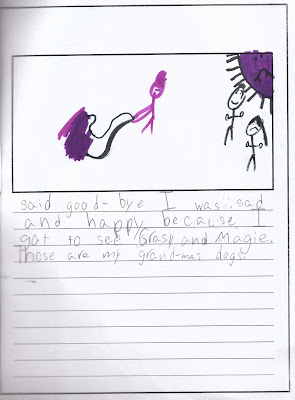 said good-bye I was sad
and happy because I
got to see Grasy and Magie.
Those are my grand-ma's dogs.